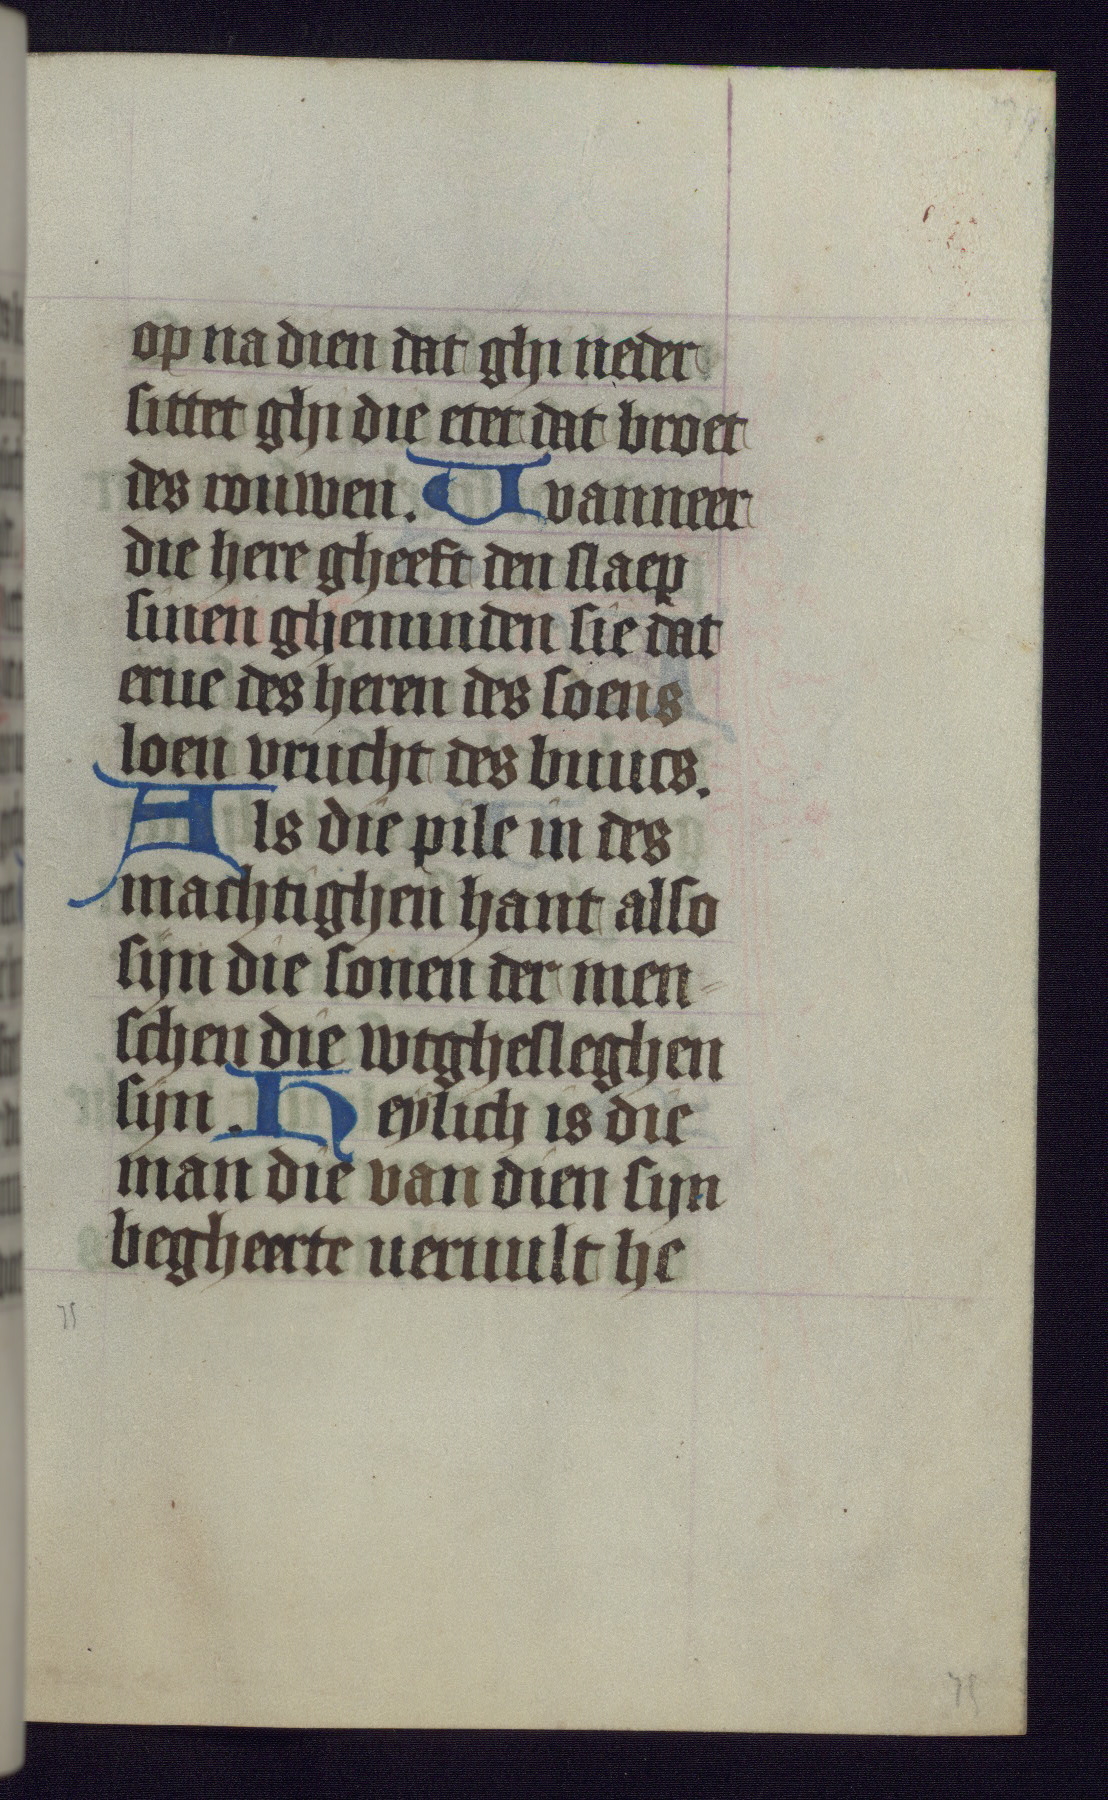 op na dien dat ghi neder
sittet ghi die etet dat broet
des rouwen. Vvanneer
die here gheeft den slaep
sinen gheminden sie dat
erue des heren des soens
loen vrucht des buucs.
Als die pile in des
machtighen hant also
sijn die sonen der men
schen die wtghesleghen
sijn. Heylich is die
man die van dien sijn
begheerte ueruult he
75
75